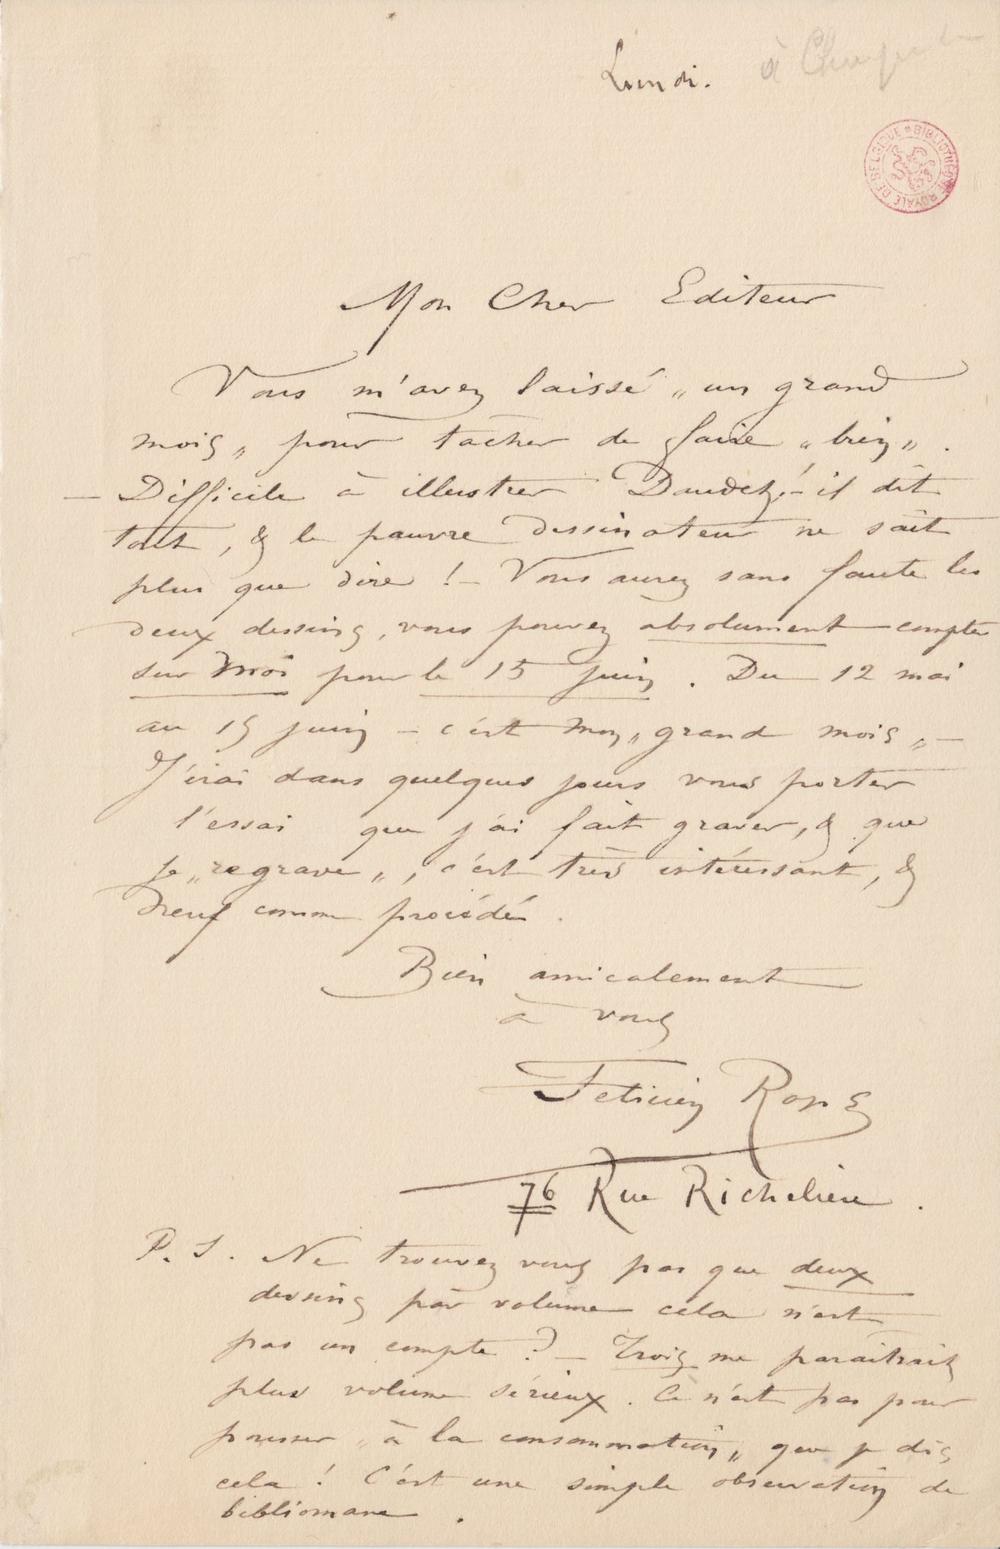 Lundi. à
BIBLIOTHÈQUE ROYALE DE BELGIQUE
Mon Cher Editeur
Vous m'avez laissé „un grand
mois„ pour tacher de faire „bien„.
— Difficile à illustrer Daudet! – il dit
tout, & le pauvre dessinateur ne sait
plus que dire! – Vous aurez sans faute les
deux dessins, vous pouvez absolument compter
sur moi pour le 15 juin. Du 12 mai
au 15 juin – c'est mon „grand mois„ –
J'irai dans quelques jours vous porter
l'essai que j'ai fait graver, & que
je „regrave„, c'est très intéressant, &
neuf comme procédé.
Bien amicalement
à vous
Félicien Rops
76 Rue Richelieu.
P.S. Ne trouvez vous pas que deux
dessins par volume cela n'est
pas un compte? – Trois me paraitrait
plus volume sérieux. Ce n'est pas pour
pousser „à la consommation„ que je dis
cela! C'est une simple observation de
bibliomane.